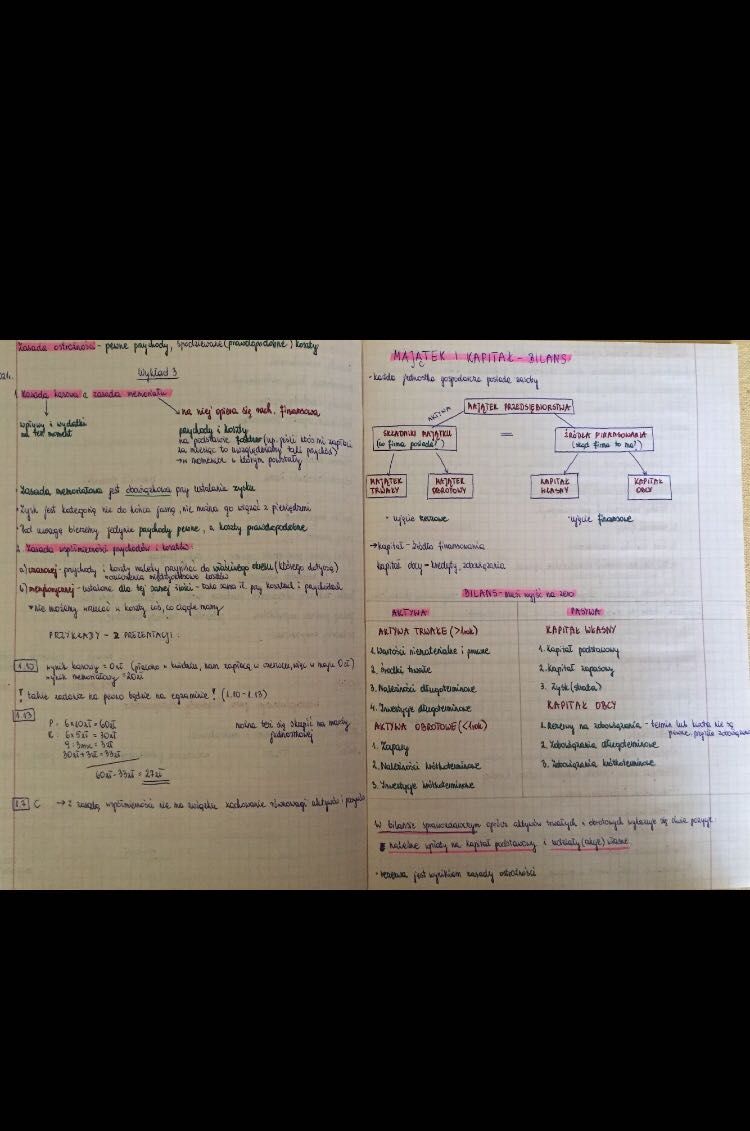 Zasada ostrożności - pewne przychody, spodziewane (prawdopodobne) koszty
Wykład 3
1. Zasada kasowa a zasada memoriału
wpływy i wydatki
na ten moment
na niej opiera się rach. finansowa
przychody i koszty
na podstawie faktur (np. jeśli ktoś mi zapłaci
za miesiąc to uwzględniamy taki przychód)
→ w momencie w którym powstały
• Zasada memoriałowa jest obowiązkowa przy ustalaniu zysku
• Zysk jest kategorią nie do końca jasną, nie można go wiązać z pieniędzmi
• Pod uwagę bierzemy jedynie przychody pewne, a koszty prawdopodobne
2. Zasada współmierności przychodów i kosztów:
a) czasowej - przychody i koszty należy przypisać do właściwego okresu (którego dotyczą)
rozliczenia międzyokresowe kosztów
b) merytorycznej - ustalone dla tej samej ilości - taka sama il. przy kosztach i przychodach
* nie możemy wrzucać w koszty coś, co ciągle mamy
PRZYKŁADY - Z PREZENTACJI:
1.10 wynik kasowy = 0 zł (pisano w kwietniu, nam zapłacą w czerwcu, więc w maju 0 zł)
wynik memoriałowy = 20 zł
! takie zadania na pewno będzie na egzaminie! (1.10 - 1.13)
1.13
P: 6 x 10 zł = 60 zł
K: 6 x 5 zł = 30 zł
9 : 3 mc = 3 zł
30 zł + 3 zł = 33 zł
60 zł - 33 zł = 27 zł
można też się skupić na marży
jednostkowej
1.7 C → z zasadą współmierności nie ma związku zachowanie równowagi aktywów i pasywów
MAJĄTEK I KAPITAŁ - BILANS
- każda jednostka gospodarcza posiada zasoby
MAJĄTEK PRZEDSIĘBIORSTWA
AKTYWA
SKŁADNIKI MAJĄTKU
(co firma posiada?)
=
ŹRÓDŁA FINANSOWANIA
(skąd firma to ma?)
MAJĄTEK
TRWAŁY
MAJĄTEK
OBROTOWY
KAPITAŁ
WŁASNY
KAPITAŁ
OBCY
• ujęcie rzeczowe
• ujęcie finansowe
→ kapitał - źródło finansowania
kapitał obcy - kredyty, zobowiązania
BILANS - musi wyjść na zero
AKTYWA
PASYWA
AKTYWA TRWAŁE (>1rok)
1. Wartości niematerialne i prawne
2. Środki trwałe
3. Należności długoterminowe
4. Inwestycje długoterminowe
AKTYWA OBROTOWE (<1rok)
1. Zapasy
2. Należności krótkoterminowe
3. Inwestycje krótkoterminowe
KAPITAŁ WŁASNY
1. Kapitał podstawowy
2. Kapitał zapasowy
3. Zysk (strata)
KAPITAŁ OBCY
1. Rezerwy na zobowiązania - termin lub kwota nie są
pewne, przyszłe zobowiązania
2. Zobowiązania długoterminowe
3. Zobowiązania krótkoterminowe
W bilansie sprawozdawczym oprócz aktywów trwałych i obrotowych wykazuje się dwie pozycje:
należne wpłaty na kapitał podstawowy i udziały (akcje) własne
• rezerwa jest wynikiem zasady ostrożności